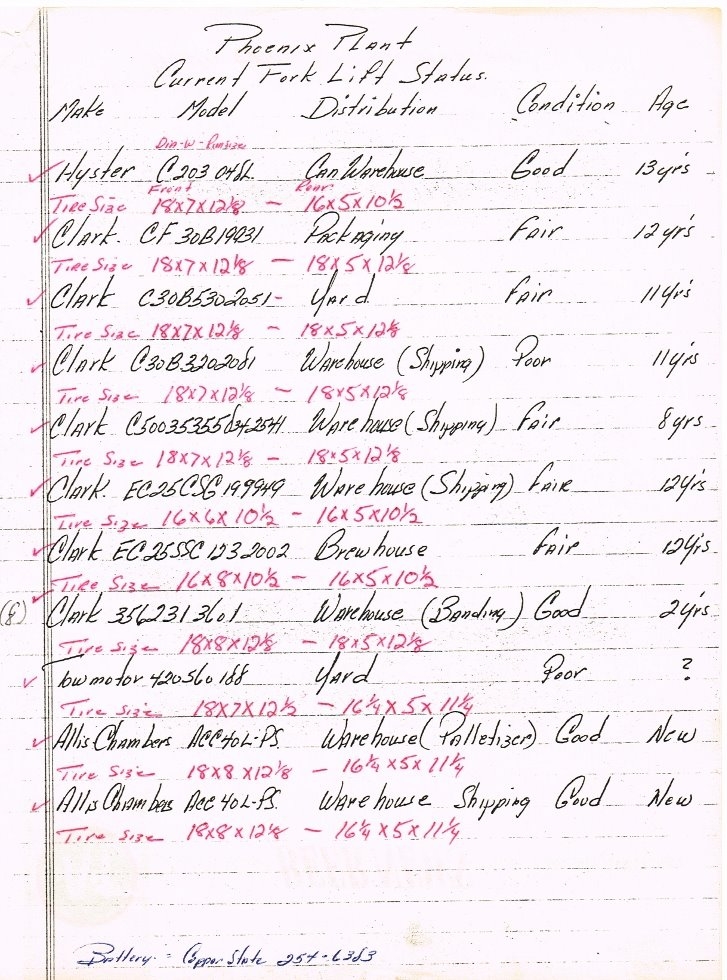 Phoenix Plant
Current Fork Lift Status.
Make Model Distribution Condition Age
Dia-W-Rimsize
✓ Hyster C203 048L Can Warehouse Good 13yrs
Front Rear
Tire Size 18x7x12⅛ - 16x5x10½
✓ Clark. CF30B19931 Packaging Fair 12yrs
Tire Size 18x7x12⅛ - 18x5x12⅛
✓ Clark C30B5302051- Yard Fair 11yrs
Tire Size 18x7x12⅛ - 18x5x12⅛
✓ Clark C30B3202081 Warehouse (Shipping) Poor 11yrs
Tire Size 18x7x12⅛ - 18x5x12⅛
✓ Clark Warehouse (Shipping) Fair 8yrs
Tire Size 18x7x12⅛ - 18x5x12⅛
✓ Clark. EC25CSG199949 Warehouse (Shipping) Fair 12yrs
Tire Size 16x6x10½ - 16x5x10½
✓ Clark EC25SSC1232002 Brewhouse Fair 12yrs
Tire Size 16x8x10½ - 16x5x10½
(8) ✓ Clark 3562313601 Warehouse (Banding) Good 2yrs
Tire Size 18x8x12⅛ - 18x5x12⅛
✓ Towmotor 420560188 Yard Poor ?
Tire Size 18x7x12½ - 16¼x5x11¼
✓ Allis Chambers ACC40L-PS. Warehouse (Palletizer) Good New
Tire Size 18x8x12⅛ - 16¼x5x11¼
✓ Allis Chambers Acc40L-PS. Warehouse Shipping Good New
Tire Size 18x8x12⅛ - 16¼x5x11¼
Battery: Copper State 254-6383